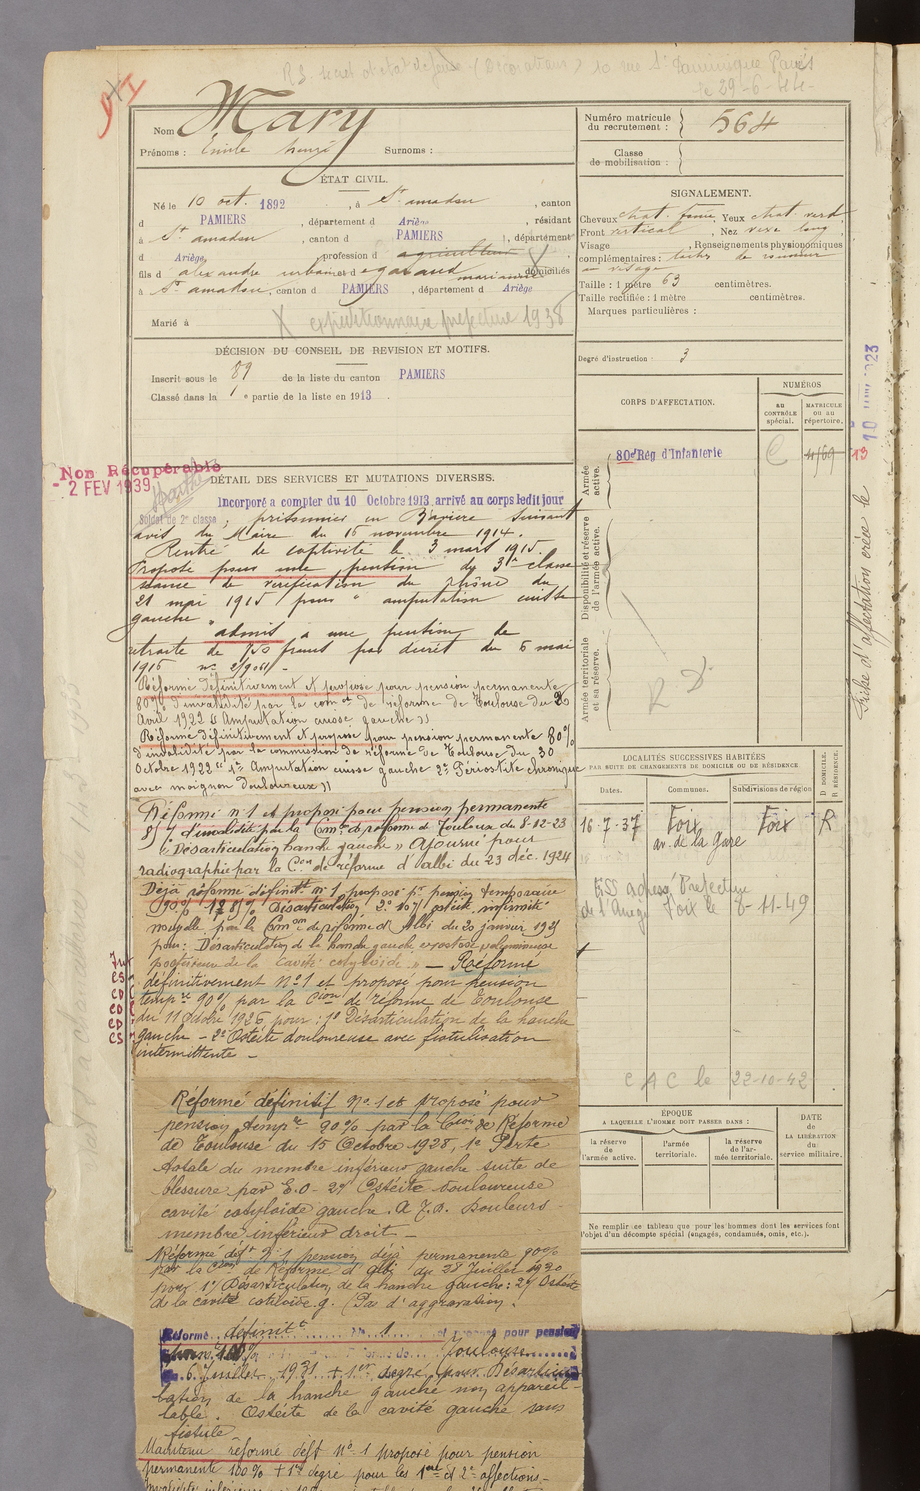 R.S. secret d'etat defense (Décorations) 10 rue St Dominique Paris
le 29-6-44-
Nom Mary
Prénoms : Emile Surnoms :
ÉTAT CIVIL.
Né le 10 oct. 1892, à St amadou, canton
d PAMIERS, département d Ariège, résidant
à St amadou, canton d PAMIERS, département
d Ariège, profession d agriculteur
fils d alexandre urbain et d garaud marianne domiciliés
à St amadou, canton d PAMIERS, département d Ariège
Marié à
X expéditionnaire préfecture 1938
DÉCISION DU CONSEIL DE REVISION ET MOTIFS.
Inscrit sous le n° 89 de la liste du canton PAMIERS
Classé dans la 1e partie de la liste en 1913.
Non Récupérable
- 2 FEV 1939
DÉTAIL DES SERVICES ET MUTATIONS DIVERSES.
Incorporé a compter du 10 Octobre 1913, arrivé au corps ledit jour
Soldat de 2e classe, prisonnier en Bavière suivant
avis du Maire du 16 novembre 1914.
Rentré de captivité le 3 mars 1915.
Proposé pour une pension de 3e classe
séance de vérification du Rhône du
21 mai 1915 pour " amputation cuisse
gauche " admis a une pension de
retraite de 750 francs par décret du 6 mai
1916 n°
Réformé définitivement et proposé pour pension permanente
80% d'invalidité par la comon de réforme de Toulouse du 26
Avril 1922 (( Amputation cuisse gauche ))
Réformé définitivement et proposé pour pension permanente 80%
d'invalidité par la commission de réforme de Toulouse du 30
Octobre 1922 " 1° Amputation cuisse gauche 2° Périostite chronique
avec moignon douloureux ))
Réformé n°1 et proposé pour pension permanente
85% d'invalidité par la Comon de réforme de Toulouse du 8-12-23
" Désarticulation hanche gauche " Ajourné pour
radiographie par la Con de réforme d'albi du 23 déc. 1924
Déjà réforme définitt n° 1 proposé pr pension temporaire
90% 1° 85% Désarticulation, 2° 10% ostéite, infirmité
nouvelle, par la Comon de réforme d'Albi du 20 janvier 1925
pour : Désarticulation de la hanche gauche exostose volumineuse
postérieure de la cavité cotyloïde " — Réformé
définitivement N°1 et proposé pour pension
tempre 90% par la Cion de réforme de Toulouse
du 11 Octobre 1926 pour : 1° Désarticulation de la hanche
gauche - 2° Ostéite douloureuse avec fistulisation
intermittente -
Réformé définitif N° 1 et proposé pour
pension tempre 90% par la Cion de Réforme
de Toulouse du 15 Octobre 1928, 1° Perte
totale du membre inférieur gauche suite de
blessure par E.O - 2° Ostéite douloureuse
cavité cotyloïde gauche. A.J.D. Douleurs
membre inférieur droit -
Réformé déft N° 1 pension déjà permanente 90%
par la Cion de Réforme d'Albi du 28 Juillet 1930
pour 1° Désarticulation de la hanche gauche : 2° Ostéite
de la cavité cotiloïde g. (Pas d'aggravation.
Réformé définitt N° 1 et proposé pour pension
Perm. 100% Toulouse
6 Juillet 1931 + 1er degré pour Désarticu
lation de la hanche gauche non appareil-
lable. Ostéite de la cavité gauche sans
fistule.
Maintenu réformé déft N° 1 proposé pour pension
permanente 100% + 1er degré pour les 1ere et 2e affections -
Numéro matricule du recrutement : 564
Classe de mobilisation :
SIGNALEMENT.
Cheveux chat. foncé, Yeux chat. verd
Front vertical, Nez vexe long
Visage , Renseignements physionomiques
complémentaires : taches de rousseur
au visage
Taille : 1 mètre 63 centimètres.
Taille rectifiée : 1 mètre centimètres.
Marques particulières :
Degré d'instruction : 3
CORPS D'AFFECTATION.
NUMÉROS
au CONTRÔLE spécial.
MATRICULE ou au répertoire.
Armée active.
80e Rég. d'Infanterie
C
4769
13
Disponibilité et réserve de l'armée active.
Armée territoriale et sa réserve.
R D.
Fiche d'affectation créée le
LOCALITÉS SUCCESSIVES HABITÉES
PAR SUITE DE CHANGEMENTS DE DOMICILE OU DE RÉSIDENCE.
Dates. Communes. Subdivisions de région
D DOMICILE. R RÉSIDENCE.
16-7-37 Foix Foix R
av. de la gare
adressé Préfecture
de l'Ariège Foix le 8-11-49
C A C le 22-10-42
ÉPOQUE
A LAQUELLE L'HOMME DOIT PASSER DANS :
la réserve de l'armée active.
l'armée territoriale.
la réserve de l'armée territoriale.
DATE de LA LIBÉRATION du service militaire.
Ne remplir ce tableau que pour les hommes dont les services font
l'objet d'un décompte spécial (engagés, condamnés, omis, etc.).